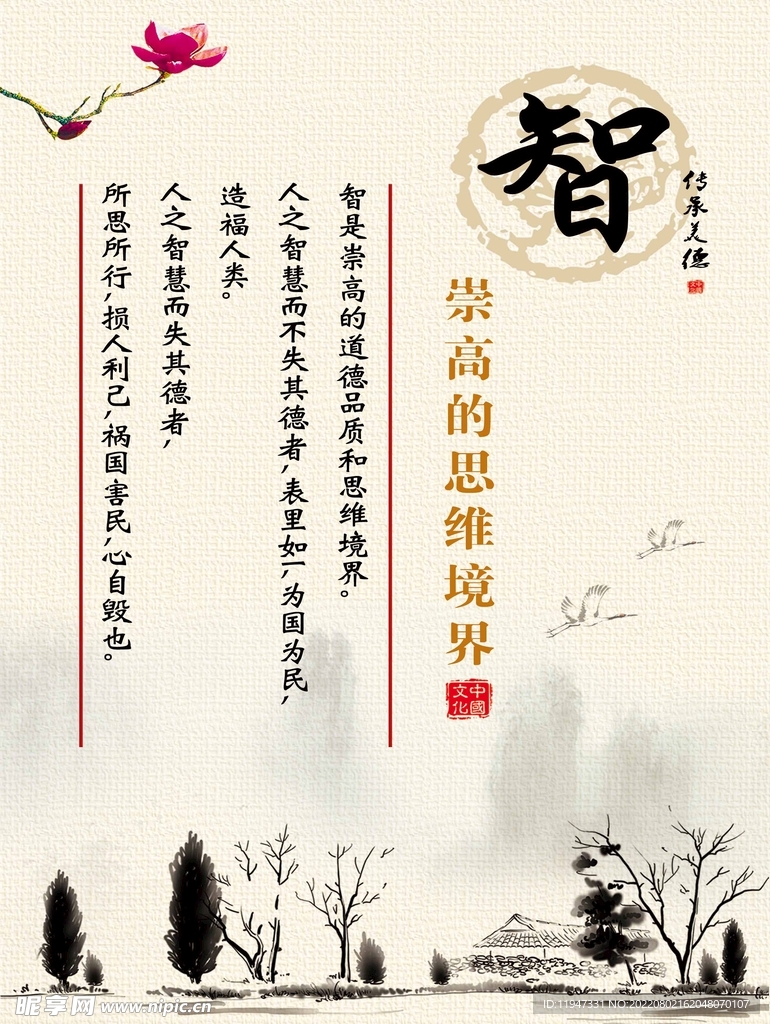 智
传承美德
中國文化
崇高的思维境界
中國文化
智是崇高的道德品质和思维境界。
人之智慧而不失其德者,表里如一,为国为民,
造福人类。
人之智慧而失其德者,
所思所行,损人利己,祸国害民,心自毁也。
昵享网 www.nipic.cn
ID:11947331 NO:20220802162048070107